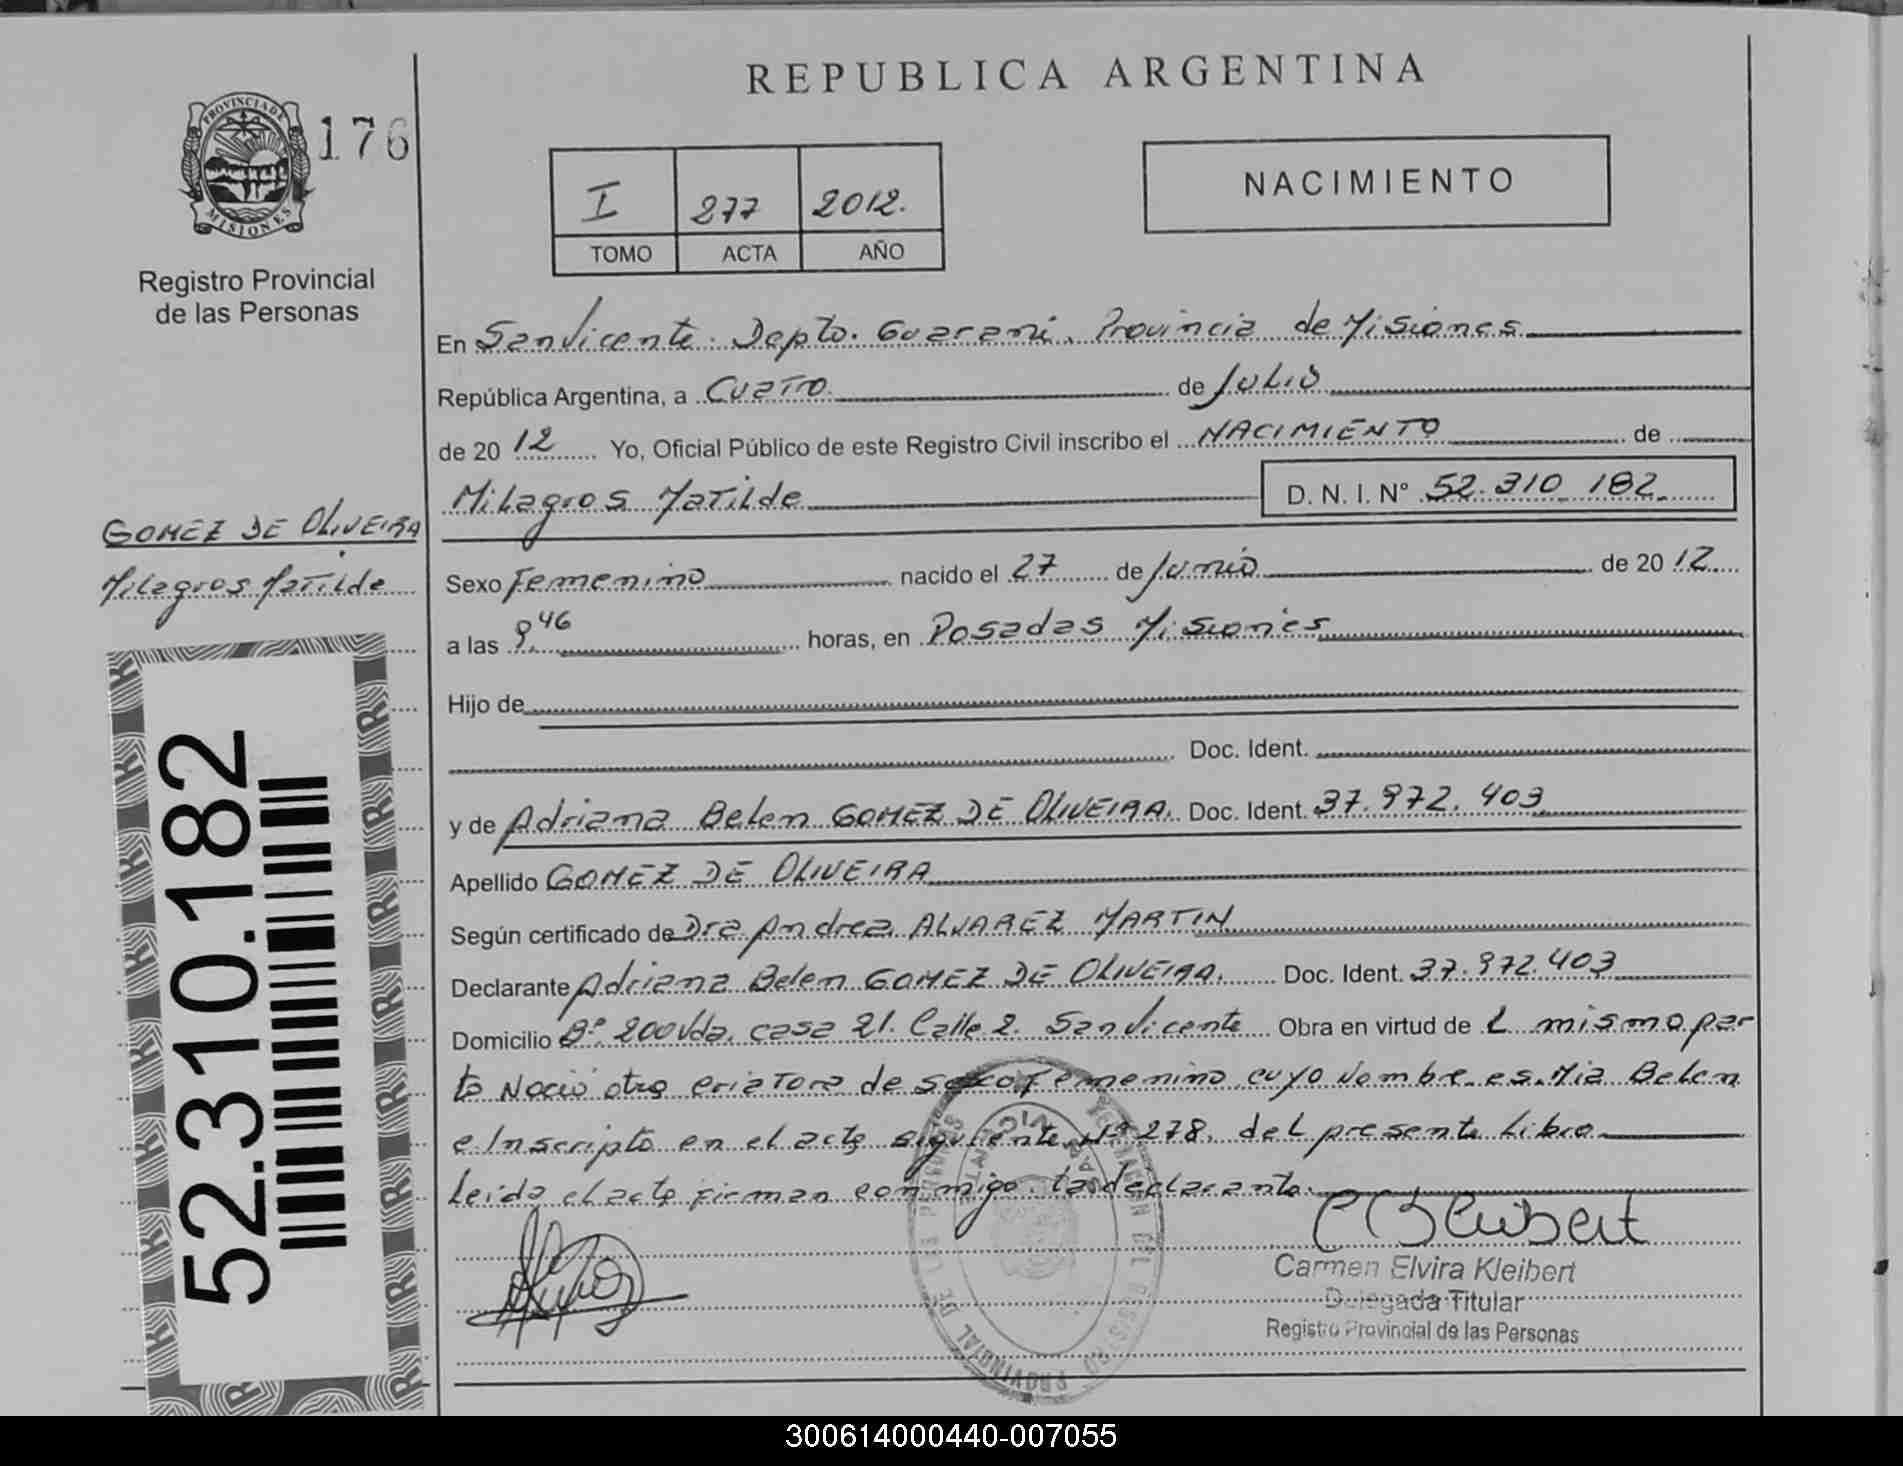 REPUBLICA ARGENTINA
PROVINCIA DE
MISIONES
176
Registro Provincial
de las Personas
I 277 2012.
TOMO ACTA AÑO
NACIMIENTO
En San Vicente. Depto. Guarani. Provincia de Misiones
República Argentina, a Cuatro de Julio
de 2012 Yo, Oficial Público de este Registro Civil inscribo el NACIMIENTO de
Milagros Matilde D. N. I. N° 52.310.182
GOMEZ DE OLIVEIRA
Milagros Matilde
Sexo Femenino nacido el 27 de Junio de 2012
a las 9.46 horas, en Posadas Misiones
Hijo de
Doc. Ident.
y de Adriana Belen GOMEZ DE OLIVEIRA. Doc. Ident. 37.972.403
Apellido GOMEZ DE OLIVEIRA
Según certificado de Dra Andrea ALVAREZ MARTIN
Declarante Adriana Belen GOMEZ DE OLIVEIRA. Doc. Ident. 37.972.403
Domicilio B° 200 Vda. casa 21. Calle 2. San Vicente Obra en virtud de L mismo par
to Nació otra criatora de sexo Femenino cuyo Nombre es Mia Belen
e Inscripto en el acta siguiente N° 278. del presente Libro
Leida el acta firman conmigo la declarante.
52.310.182
REGISTRO PROVINCIAL DE LAS PERSONAS
Carmen Elvira Kleibert
Delegada Titular
Registro Provincial de las Personas
300614000440-007055